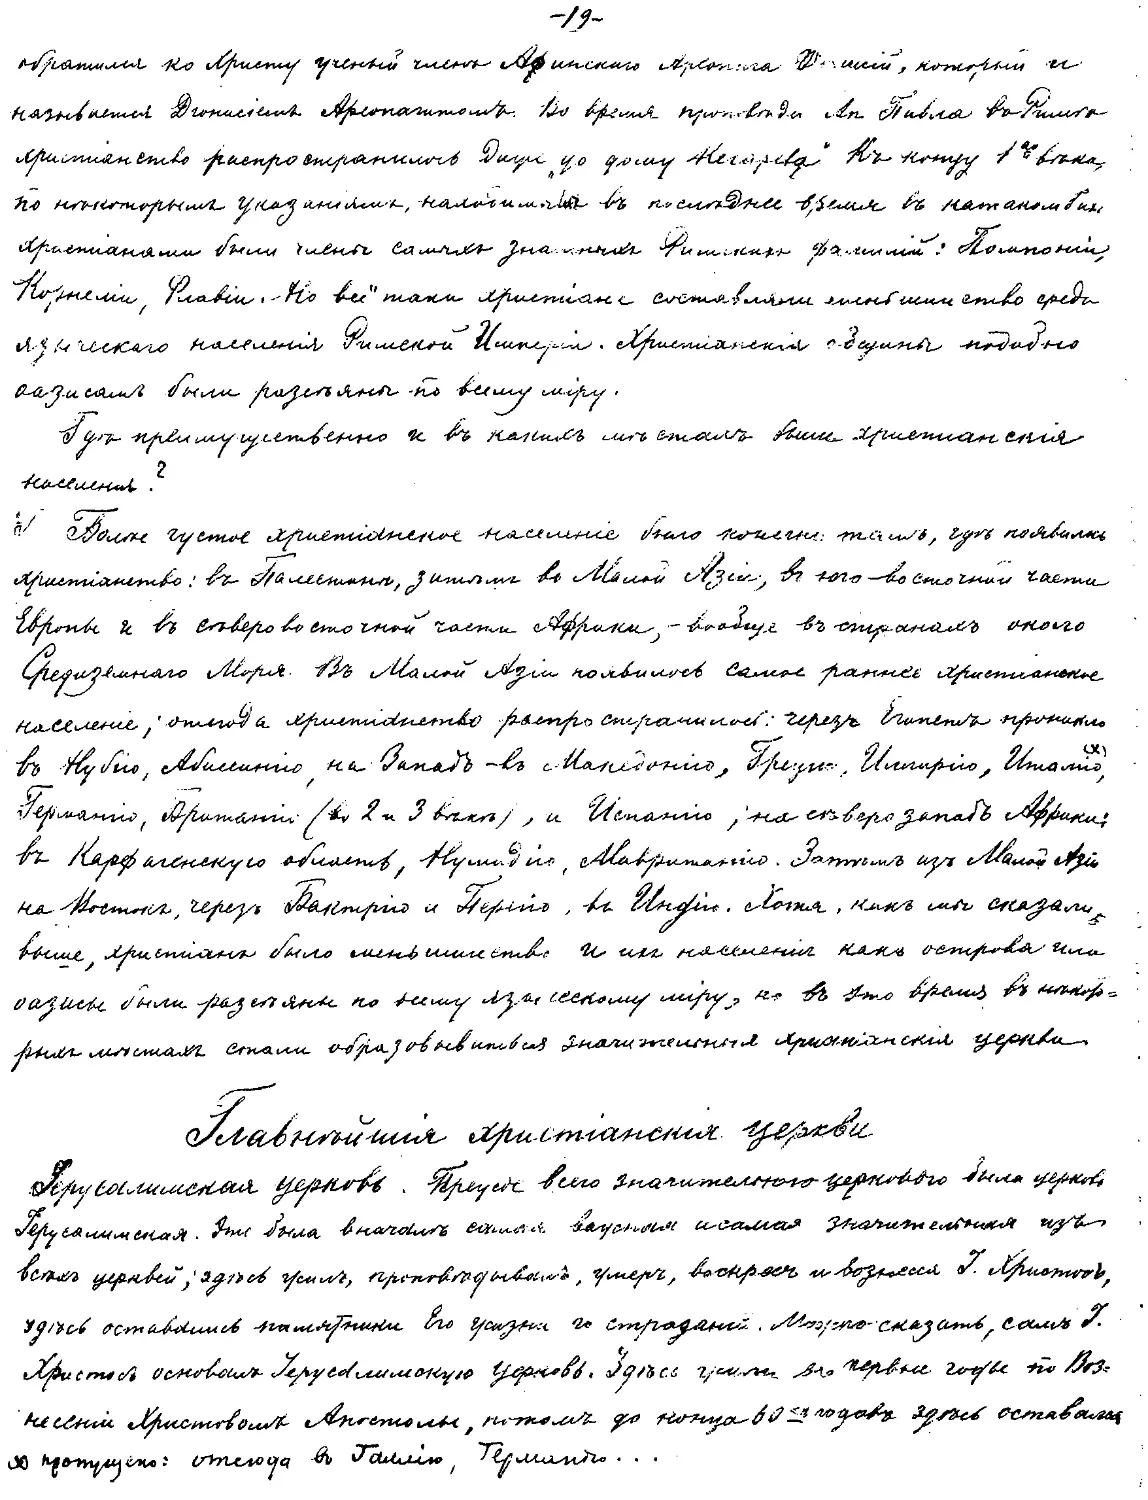 -19-
обратился ко Христу ученый членъ Афинскаго Ареопага который и
называется Діонисіемъ Ареопагитомъ. Во время проповѣди Ап. Павла въ Римѣ
христіанство распространилось даже „до дому Кесарева“ Къ концу 1го вѣка,
по нѣкоторымъ указаніямъ, въ послѣднее время въ катакомбахъ
христіанами были члены самыхъ знатныхъ Римскихъ фамилій: Помпоніи,
Корнеліи, Флавіи. Но всё таки христіане составляли меньшинство среди
языческаго населенія Римской Имперіи. Христіанскія общины подобно
оазисамъ были разсѣяны по всему міру.
Гдѣ преимущественно и въ какихъ мѣстахъ были христіанскія
населенія?
Болѣе густое христіанское населеніе было конечно тамъ, гдѣ появилось
христіанство: въ Палестинѣ, затѣмъ въ Малой Азіи, въ юго-восточной части
Европы и въ сѣверовосточной части Африки, - вообще въ странахъ около
Средиземнаго Моря. Въ Малой Азіи появилось самое раннее христіанское
населеніе; отсюда христіанство распространилось: черезъ Египетъ проникло
въ Нубію, Абиссинію, на Западъ - въ Македонію, Грецію, Иллирію, Италію, (х)
Германію, Британію (во 2 и 3 вѣкѣ), и Испанію; на сѣверозападъ Африки:
въ Карфагенскую область, Нумидію, Мавританію. Затѣмъ изъ Малой Азіи
на Востокъ, черезъ Бактрію и Персію, въ Индію. Хотя, какъ мы сказали
выше, христіанъ было меньшинство и их населенія какъ острова или
оазисы были разсѣяны по всему языческому міру, но въ это время въ нѣкото=
рыхъ мѣстахъ стали образовываться значительныя христіанскія церкви.
Главнѣйшія христіанскія церкви
Іерусалимская церковь. Прежде всего значительною церковью была церковь
Іерусалимская. Она была вначалѣ самая важная и самая значительная изъ
всѣхъ церквей; здѣсь жилъ, проповѣдывалъ, умеръ, воскресъ и вознесся І. Христосъ,
здѣсь оставались памятники Его жизни и страданій. Можно сказать, самъ І.
Христосъ основалъ Іерусалимскую церковь. Здѣсь жили въ первые годы по Воз=
несеніи Христовомъ Апостолы, потомъ до конца 60хъ годовъ здѣсь оставался
х) пропущено: отсюда въ Галлію, Германію...